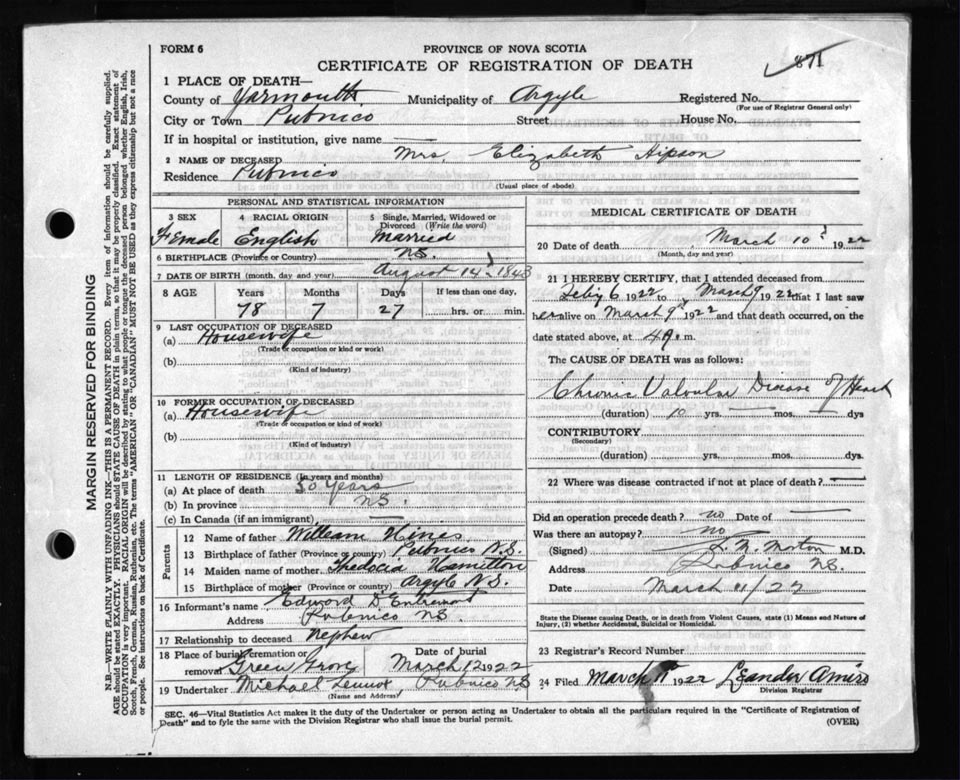 FORM 6
PROVINCE OF NOVA SCOTIA
CERTIFICATE OF REGISTRATION OF DEATH
871
1 PLACE OF DEATH—
County of Yarmouth Municipality of Argyle Registered No.
(For use of Registrar General only)
City or Town Pubnico Street House No.
If in hospital or institution, give name —
2 NAME OF DECEASED Mrs. Elizabeth Hipson
Residence Pubnico
(Usual place of abode)
PERSONAL AND STATISTICAL INFORMATION
3 SEX 4 RACIAL ORIGIN 5 Single, Married, Widowed or Divorced (Write the word)
Female English Married
6 BIRTHPLACE (Province or Country) N.S.
7 DATE OF BIRTH (month, day and year) August 14 1843
8 AGE Years Months Days If less than one day,
78 7 27 hrs. or min.
9 LAST OCCUPATION OF DECEASED
(a) Housewife
(Trade or occupation or kind of work)
(b)
(Kind of industry)
10 FORMER OCCUPATION OF DECEASED
(a) Housewife
(Trade or occupation or kind of work)
(b)
(Kind of industry)
11 LENGTH OF RESIDENCE (In years and months)
(a) At place of death 50 years
(b) In province N.S.
(c) In Canada (if an immigrant) —
Parents
12 Name of father William Hines
13 Birthplace of father (Province or country) Pubnico N.S.
14 Maiden name of mother Hamilton
15 Birthplace of mother (Province or country) Argyle N.S.
16 Informant's name Edward D Entremont
Address Pubnico N.S.
17 Relationship to deceased Nephew
18 Place of burial, cremation or removal Green Grove Date of burial March 12 1922
19 Undertaker Michael Pubnico N.S.
(Name and Address)
MEDICAL CERTIFICATE OF DEATH
20 Date of death March 10 1922
(Month, day and year)
21 I HEREBY CERTIFY, that I attended deceased from
6 1922 to March 9 1922 that I last saw
her alive on March 9 1922 and that death occurred, on the
date stated above, at 4 A. m.
The CAUSE OF DEATH was as follows:
Chronic Valvular Disease of Heart
(duration) 10 yrs. — mos. — dys
CONTRIBUTORY
(Secondary)
(duration) yrs. mos. dys.
22 Where was disease contracted if not at place of death? —
Did an operation precede death? no Date of —
Was there an autopsy? no
(Signed) Morton M.D.
Address Pubnico N.S.
Date March 11/22
State the Disease causing Death, or in death from Violent Causes, state (1) Means and Nature of Injury, (2) whether Accidental, Suicidal or Homicidal.
23 Registrar's Record Number
24 Filed March 1922 Leander Amiro
Division Registrar
SEC. 46—Vital Statistics Act makes it the duty of the Undertaker or person acting as Undertaker to obtain all the particulars required in the "Certificate of Registration of
Death" and to fyle the same with the Division Registrar who shall issue the burial permit.
(OVER)
MARGIN RESERVED FOR BINDING
N.B.—WRITE PLAINLY WITH UNFADING INK—THIS IS A PERMANENT RECORD. Every item of information should be carefully supplied.
AGE should be stated EXACTLY. PHYSICIANS should STATE CAUSE OF DEATH in plain terms, so that it may be properly classified. Exact statement of
OCCUPATION is very important. RACIAL ORIGIN will be described by stating to what people or tongue the deceased person belonged whether English, Irish,
Scotch, French, German, Russian, Ruthenian, etc. The terms "AMERICAN" OR "CANADIAN" MUST NOT BE USED as they express citizenship but not a race
or people. See instructions on back of Certificate.